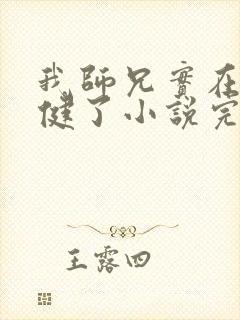 我師兄實在
健了小說完
王露四